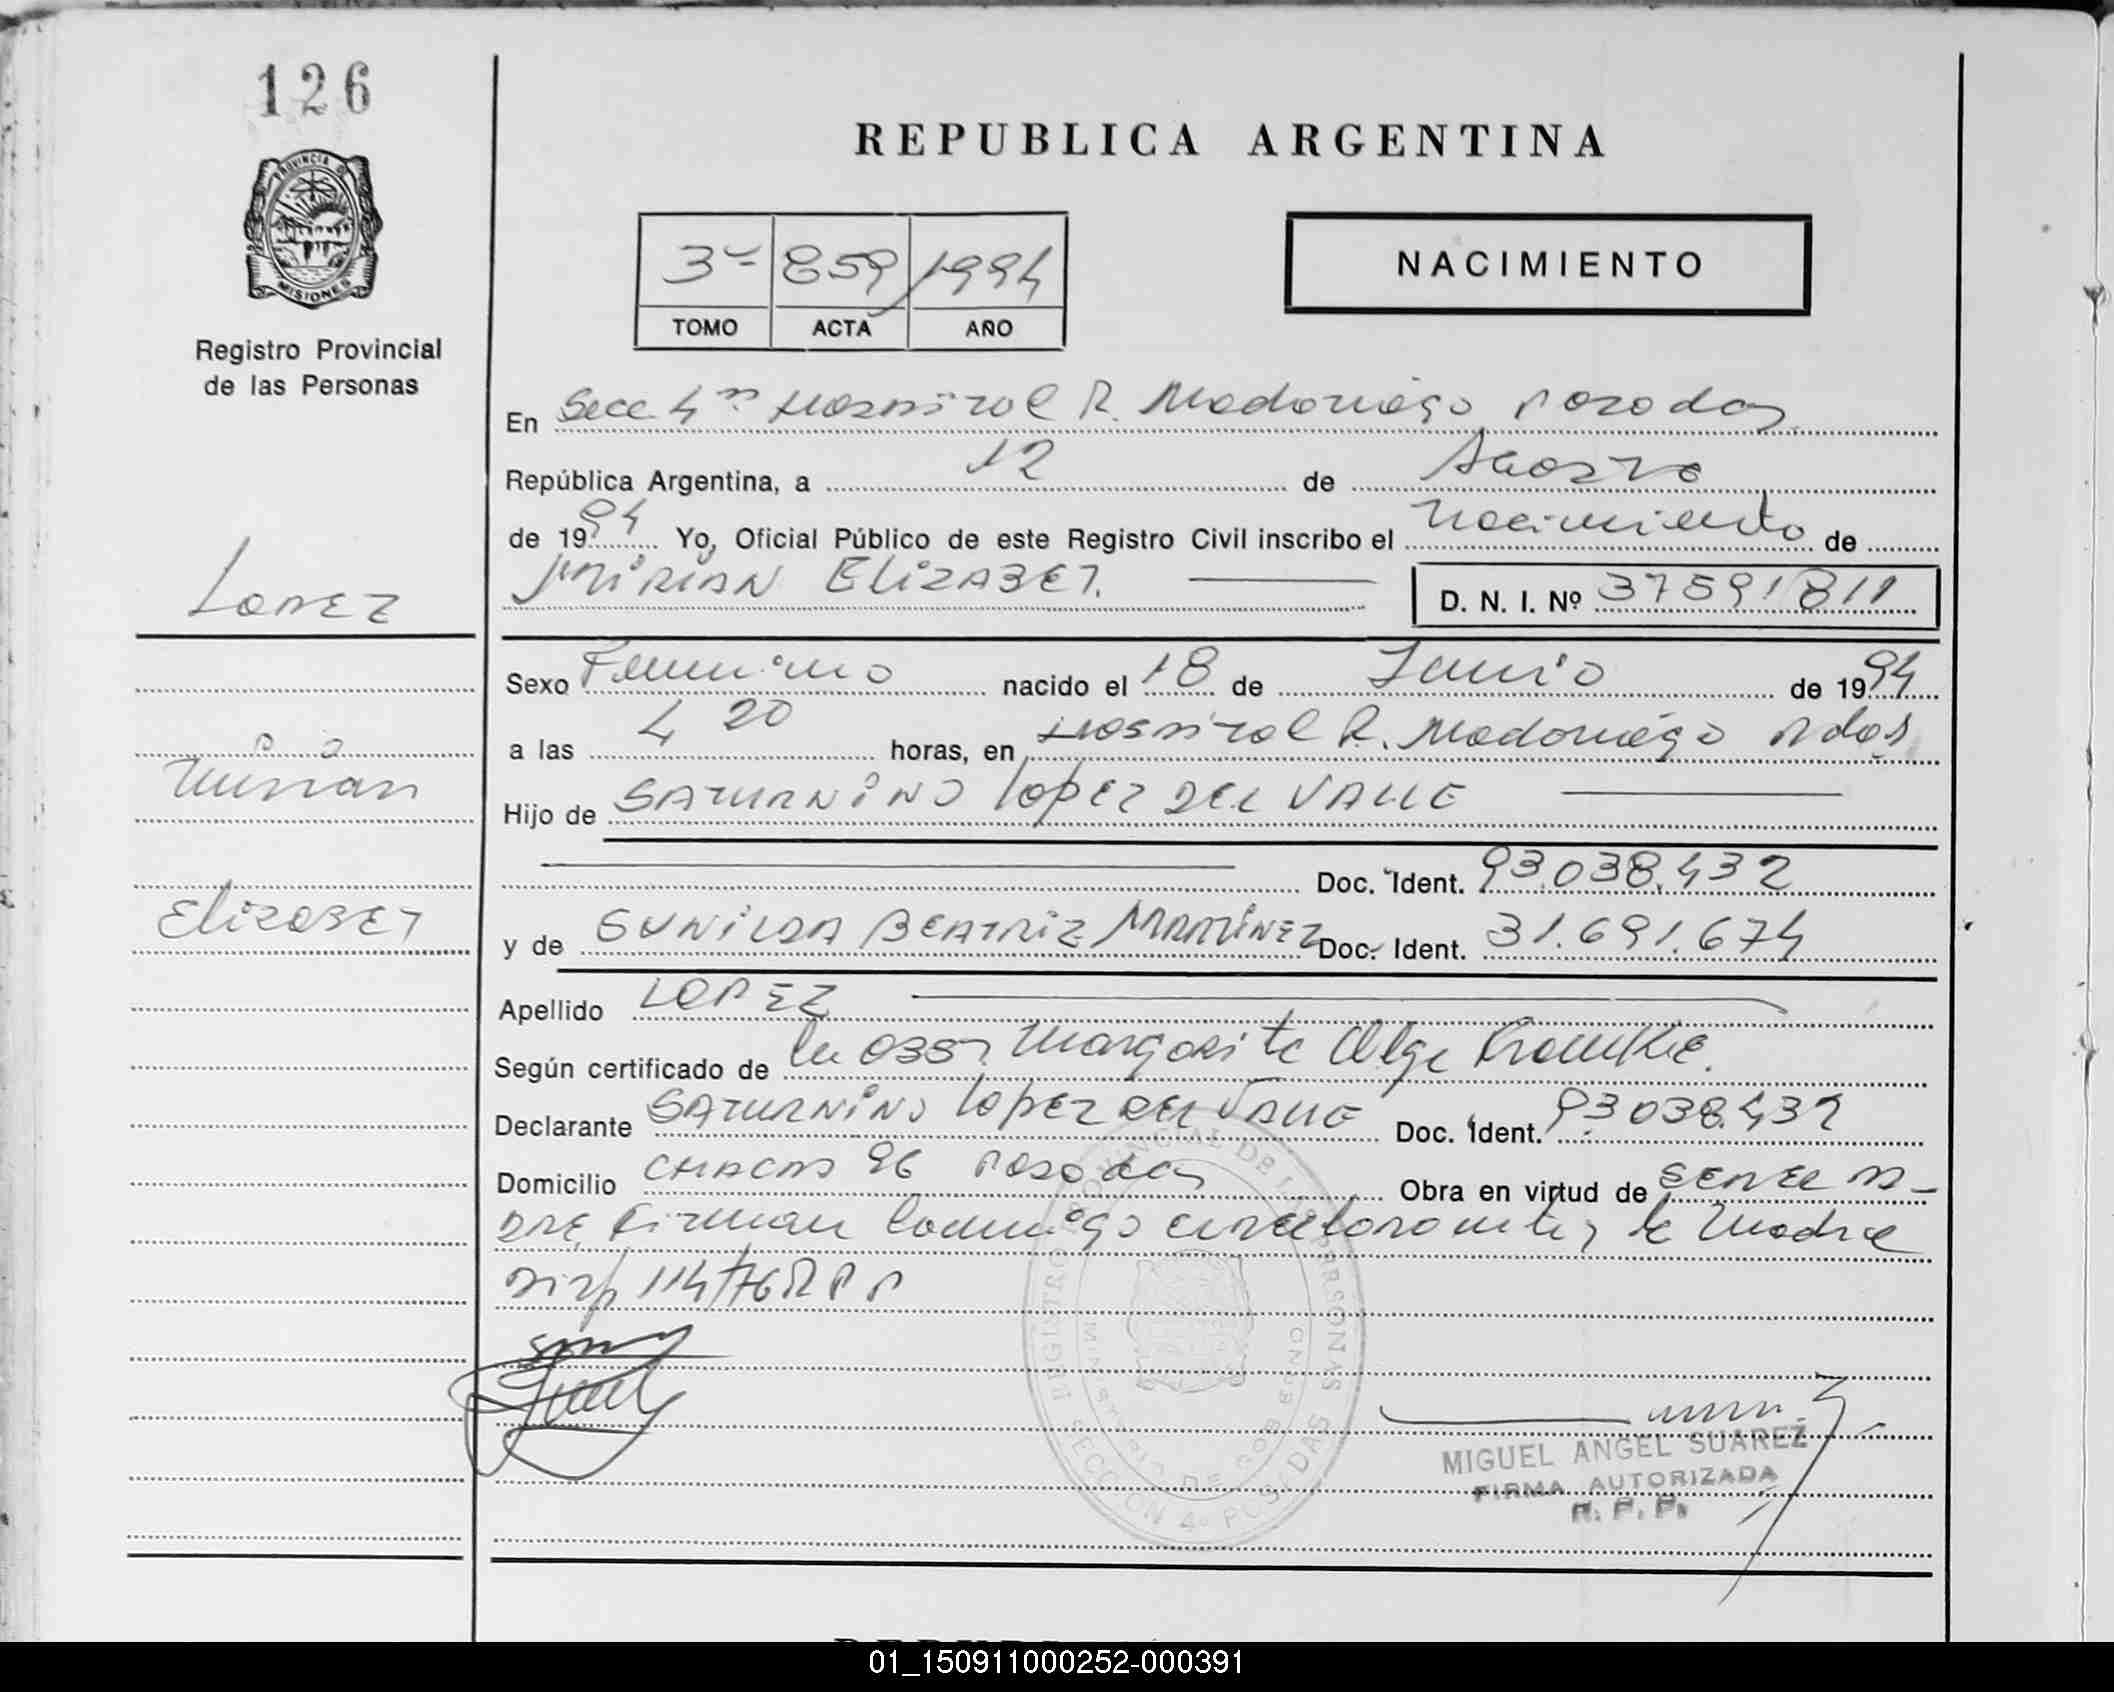 126
PROVINCIA DE
MISIONES
Registro Provincial
de las Personas
REPUBLICA ARGENTINA
3º 859 1994
TOMO ACTA AÑO
NACIMIENTO
En Secc 4ª Hospital R. Madariaga Posadas
República Argentina, a 12 de Agosto
de 1994 Yo, Oficial Público de este Registro Civil inscribo el nacimiento de
MIRIAN ELIZABET. D. N. I. Nº 37591811
Lopez
Mirian
Elizabet
Sexo Femenino nacido el 18 de Junio de 1994
a las 4 20 horas, en Hospital R. Madariaga Pdas
Hijo de SATURNINO LOPEZ DEL VALLE
Doc. Ident. 93.038.432
y de GUNILDA BEATRIZ MARTINEZ Doc. Ident. 31.691.674
Apellido LOPEZ
Según certificado de la Obst Margarita Olga
Declarante SATURNINO LOPEZ DEL VALLE Doc. Ident. 93.038.432
Domicilio CHACRA 96 Posadas Obra en virtud de SER EL PA-
DRE, Firman Conmigo el declarante y la Madre
Disp 114/76 R P P
REGISTRO PROVINCIAL DE LAS PERSONAS
MINISTERIO DE GOBIERNO
SECCION 4ª POSADAS
MIGUEL ANGEL SUAREZ
FIRMA AUTORIZADA
R. P. P.
01_150911000252-000391